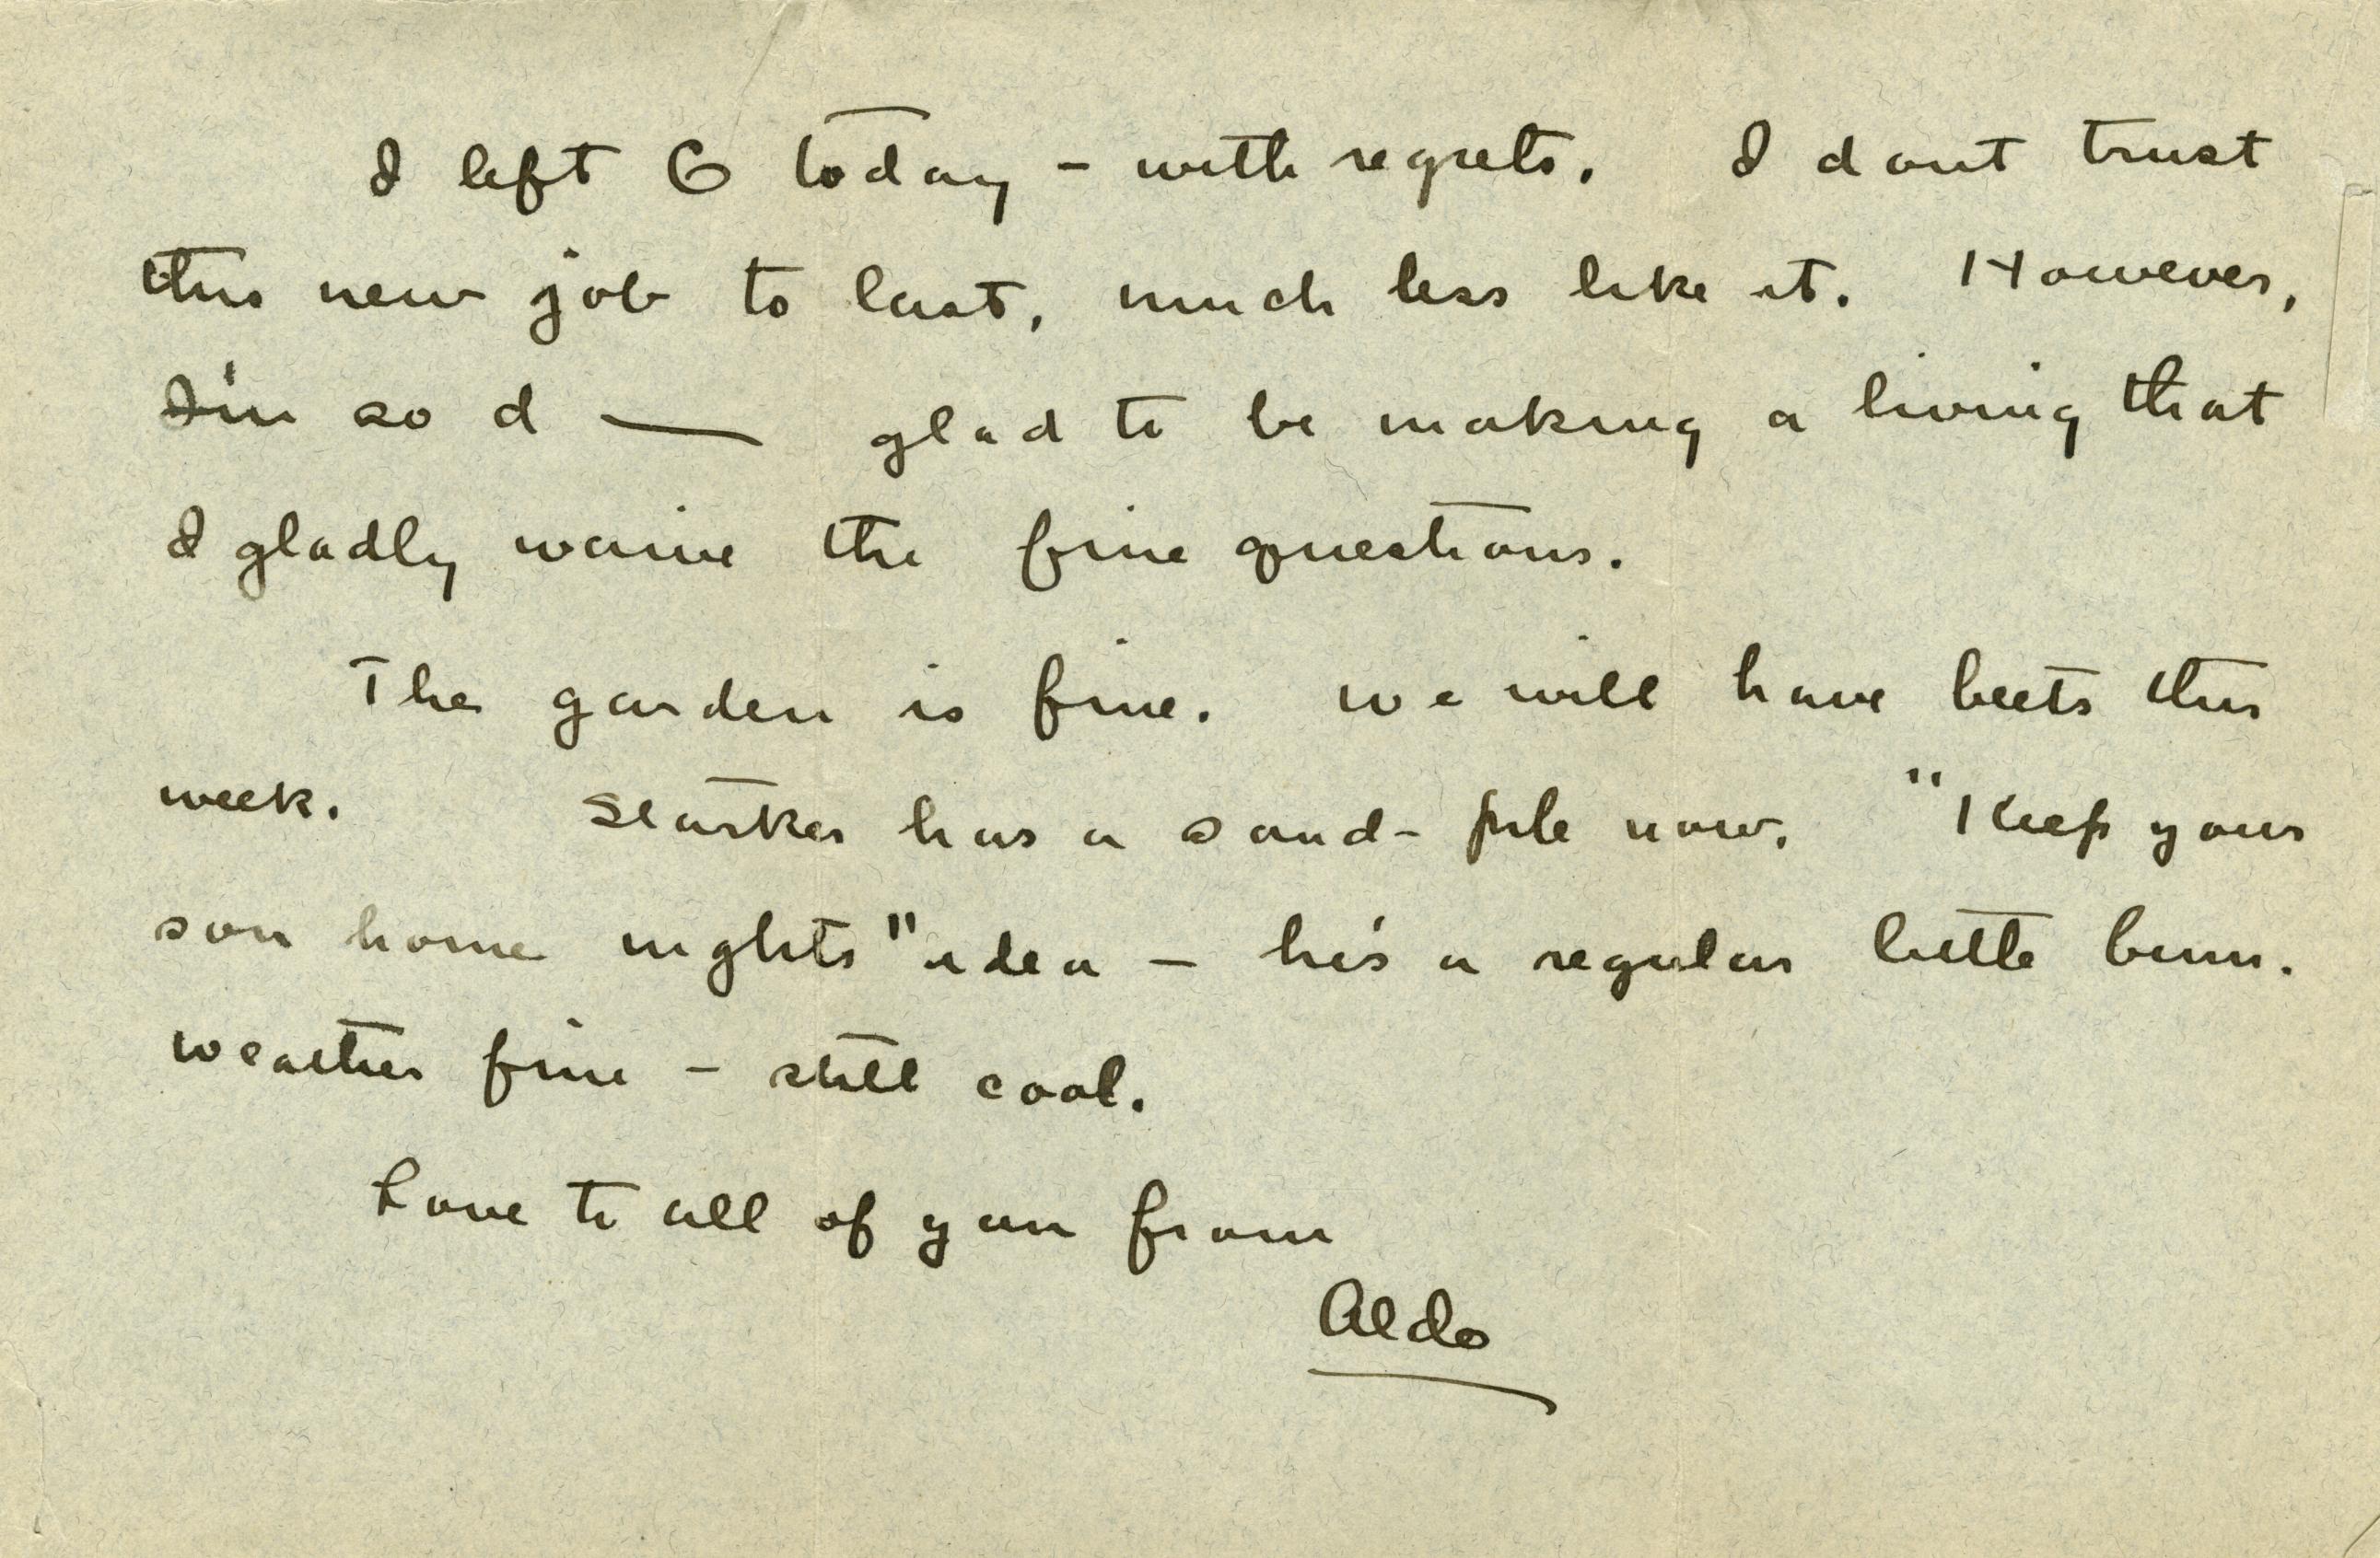 I left G today - with regrets. I dont trust
this new job to last, much less like it. However,
I'm so d —— glad to be making a living that
I gladly waive the fine questions.
The garden is fine. We will have beets this
week. Starker has a sand-pile now. "Keep your
son home nights" idea - he's a regular little bum.
Weather fine - still cool.
Love to all of you from
Aldo